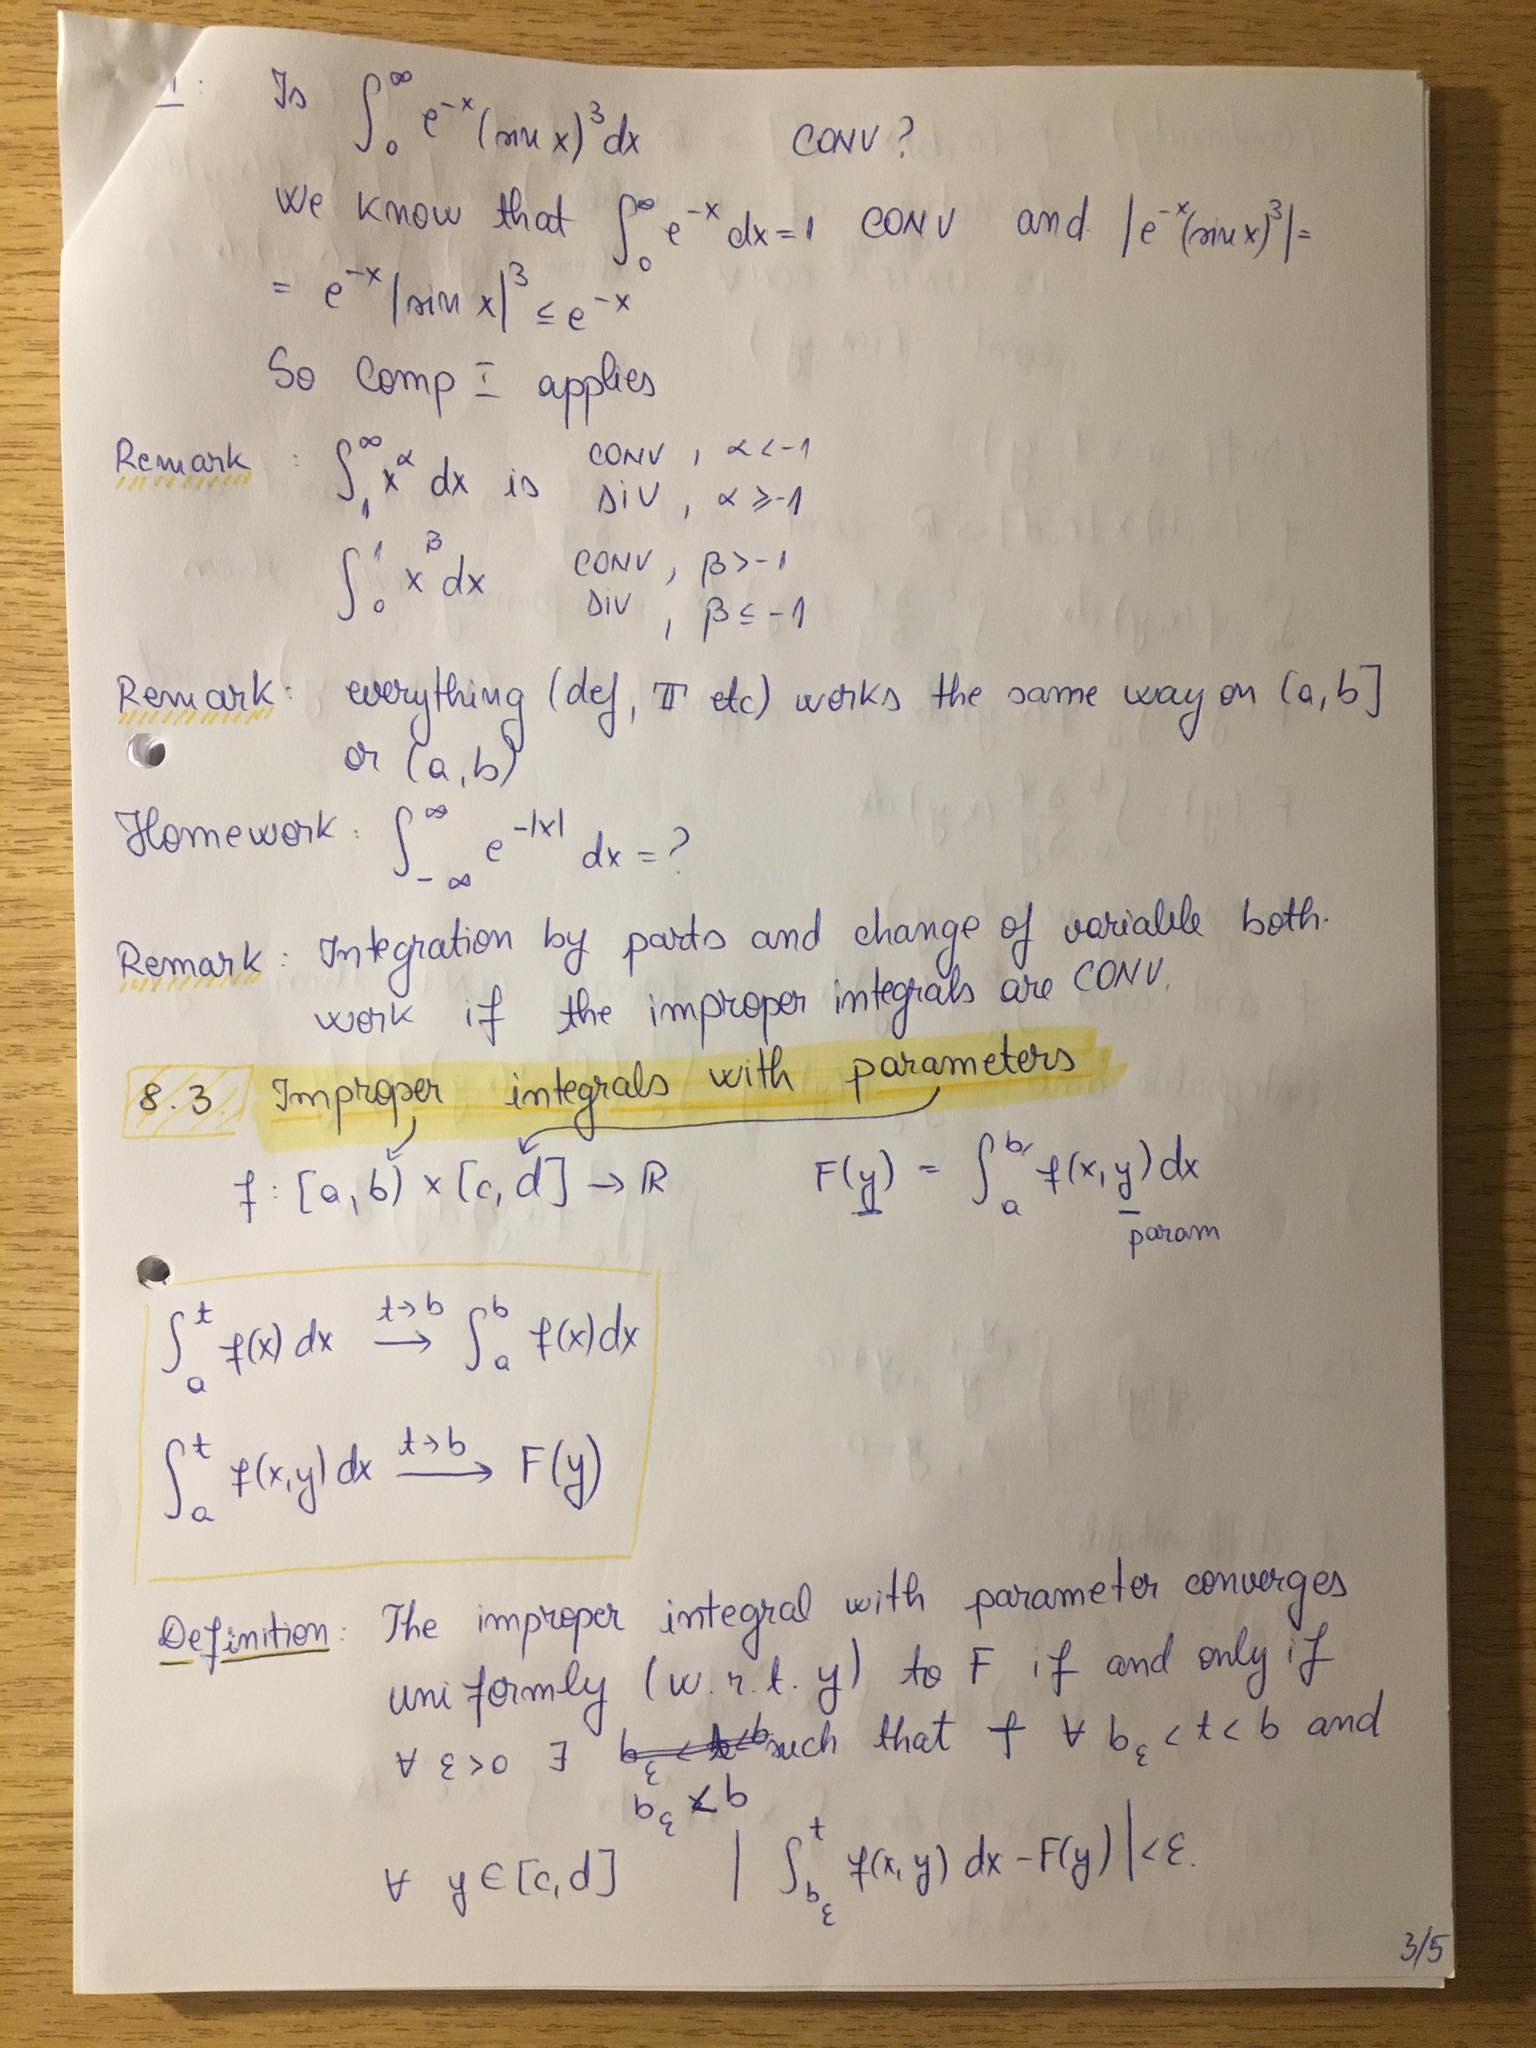 Is ∫₀^∞ e^{-x}(sin x)³dx CONV?
We know that ∫₀^∞ e^{-x} dx = 1 CONV and |e^{-x}(sin x)³| =
= e^{-x}|sin x|³ ≤ e^{-x}
So Comp I applies
Remark: ∫₁^∞ x^α dx is CONV, α<-1
DIV, α≥-1
∫₀^1 x^β dx CONV, β>-1
DIV, β≤-1
Remark: everything (def, II etc) works the same way on (a,b]
or (a,b)
Homework: ∫_{-∞}^∞ e^{-|x|} dx = ?
Remark: Integration by parts and change of variable both
work if the improper integrals are CONV.
8.3 Improper integrals with parameters
f: [a,b) × [c,d] → ℝ F(y) = ∫_a^b f(x,y)dx
param
∫_a^t f(x) dx →^{t→b} ∫_a^b f(x)dx
∫_a^t f(x,y) dx →^{t→b} F(y)
Definition: The improper integral with parameter converges
uniformly (w.r.t. y) to F if and only if
∀ ε>0 ∃ such that ∀ b_ε<t<b and
b_ε<b
∀ y∈[c,d] |∫_{b_ε}^t f(x,y) dx - F(y)|<ε.
3/5